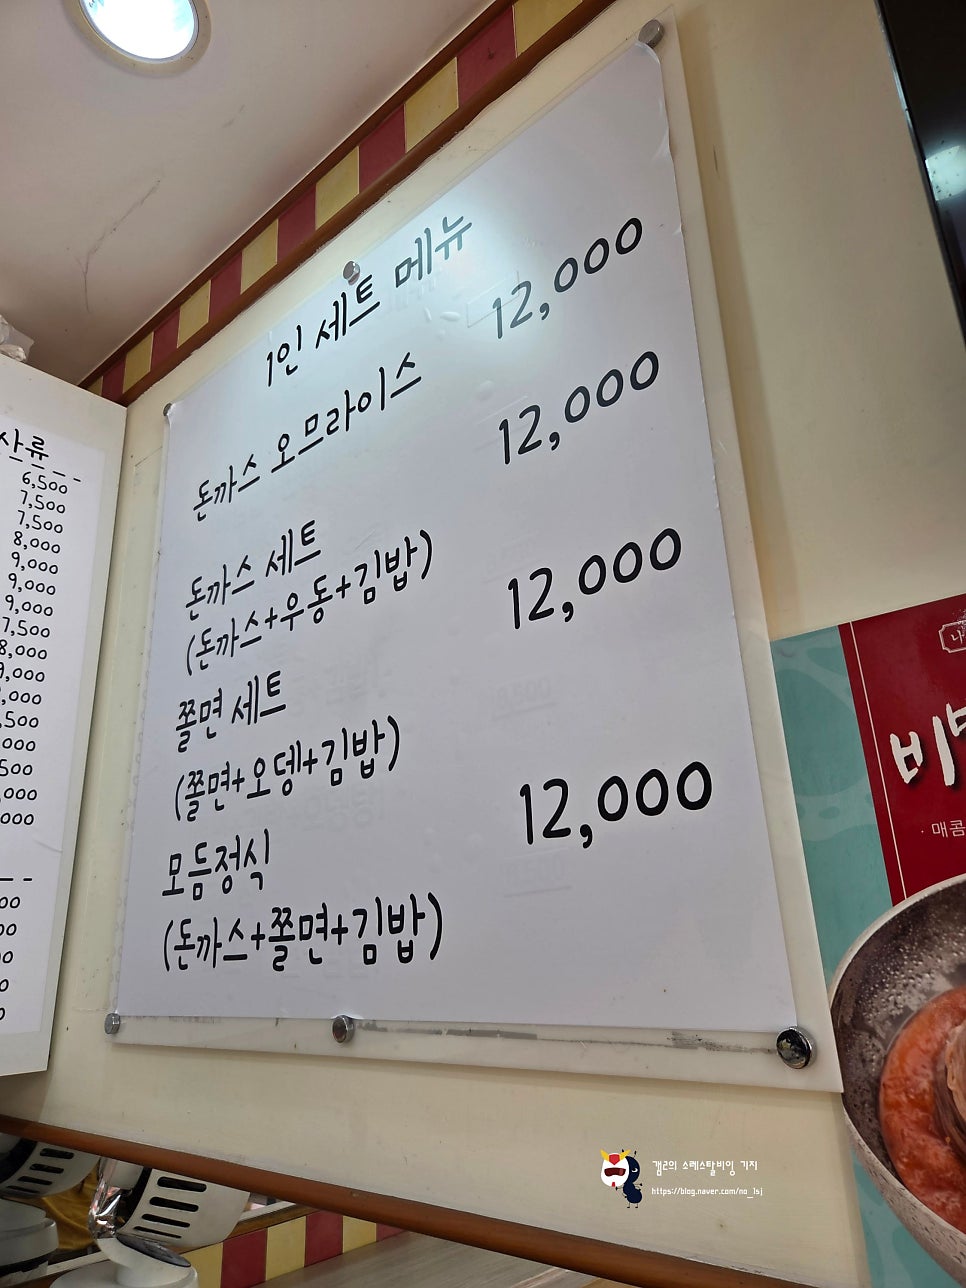 1인 세트 메뉴
돈까스 오므라이스 12,000
돈까스 세트 12,000
(돈까스+우동+김밥)
쫄면 세트 12,000
(쫄면+오뎅+김밥)
모듬정식 12,000
(돈까스+쫄면+김밥)
사류
6,500
7,500
7,500
8,000
9,000
9,000
9,000
7,500
8,000
9,000
,000
,500
000
500
,000
000
00
00
00
0
0
매콤
캡르의 소레스탈비잉 기지
https://blog.naver.com/no_1sj